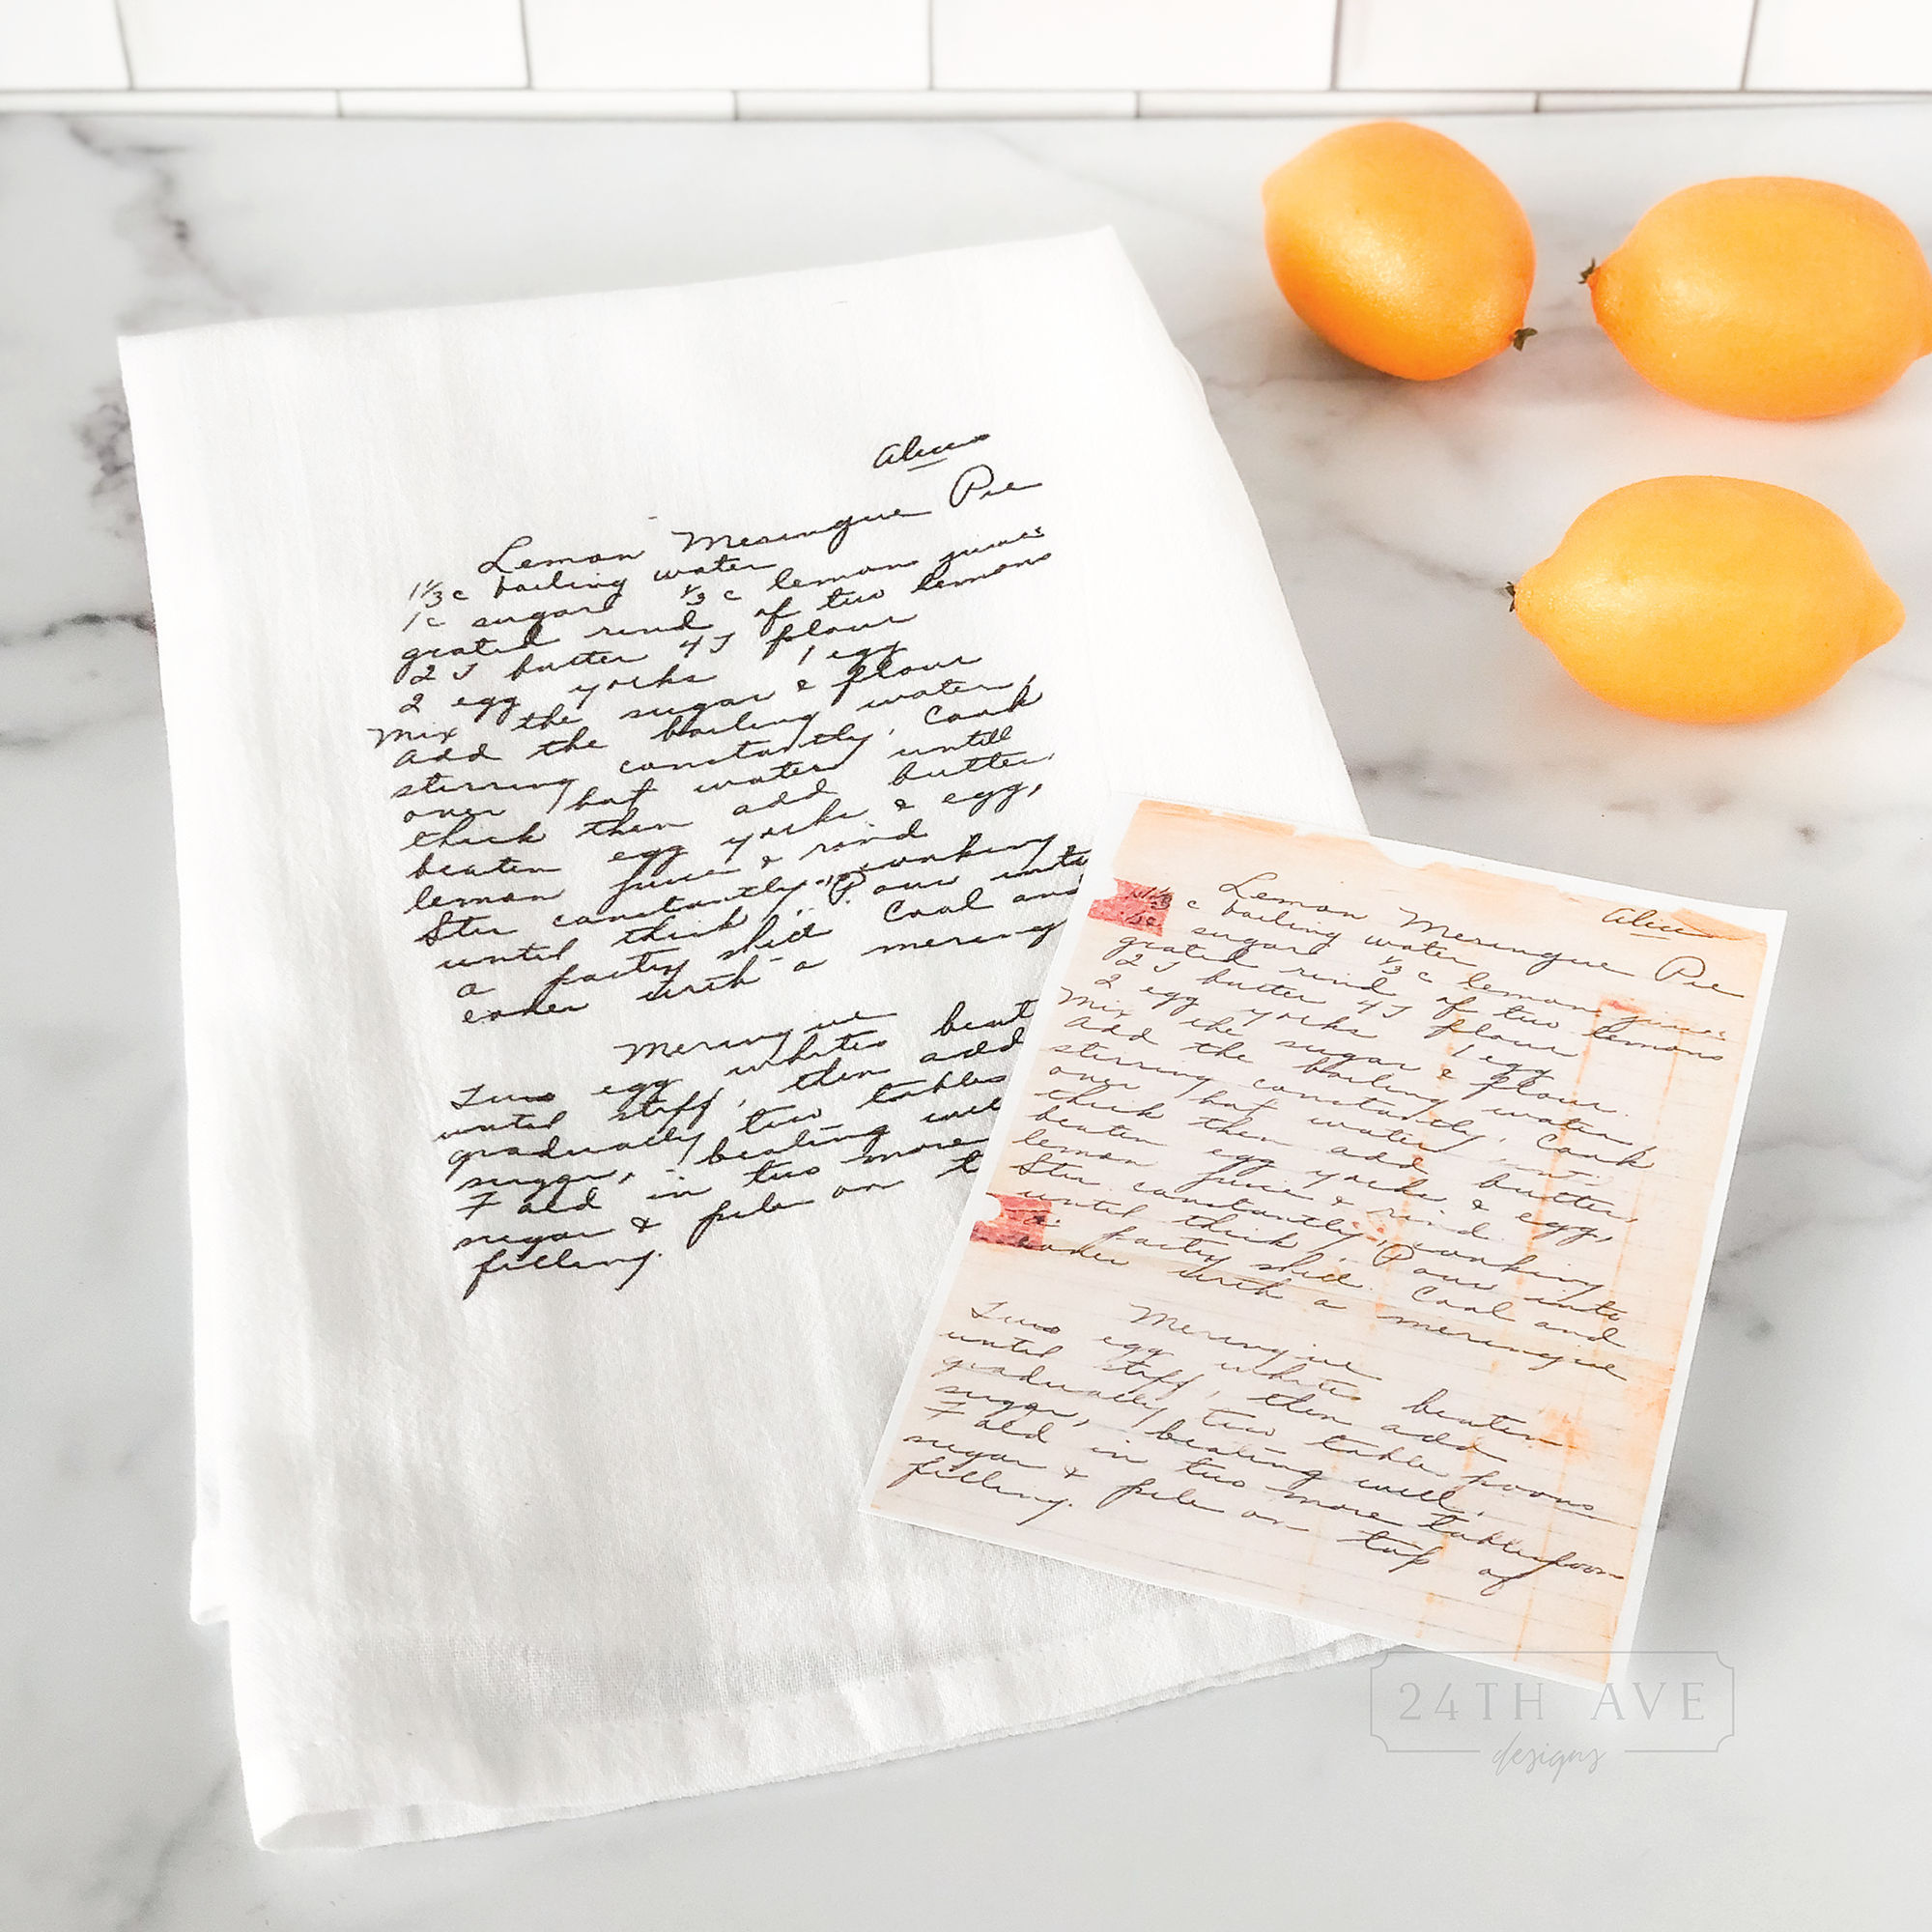 Alice
Lemon Meringue Pie
1 1/3 c boiling water
1 c sugar 1/3 c lemon juice
grated rind of two lemons
2 T butter 4 T flour
2 egg yorks 1 egg
Mix the sugar & flour
Add the boiling water,
stirring constantly. Cook
over hot water until
thick then add butter,
beaten egg yorks & egg,
lemon juice & rind
Stir constantly, cooking
until thick. Pour into
a pastry shell. Cool and
cover with a mering
Meringue
Two egg whites beat
until stiff, then add
gradually two tables
sugar, beating well
Fold in two more
sugar & pile on t
filling.
Alice
Lemon Meringue Pie
c boiling water
sugar 1/3 c lemon juice
grated rind of two lemons
2 T butter 4 T flour
2 egg yorks 1 egg
Mix the sugar & flour.
Add the boiling water,
stirring constantly. Cook
over hot water
thick then add butter
beaten egg yorks & egg,
lemon juice & rind.
Stir constantly, cooking
until thick. Pour into
a pastry shell. Cool and
cover with a meringue
Meringue
Two egg whites beaten
until stiff, then add
gradually two tablespoons
sugar, beating well.
Fold in two more tablespoon
sugar & pile on top of
filling.
24TH AVE
designs